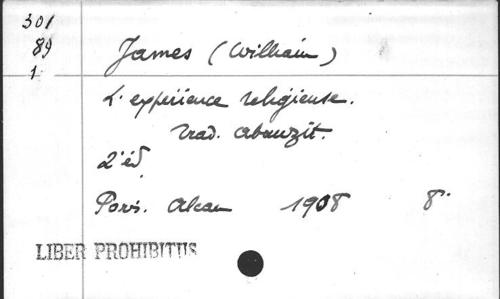 301
89
1
James (William)
L'expérience religieuse.
Trad. Abauzit.
2e éd.
Paris. Alcan 1908 8°.
LIBER PROHIBITUS